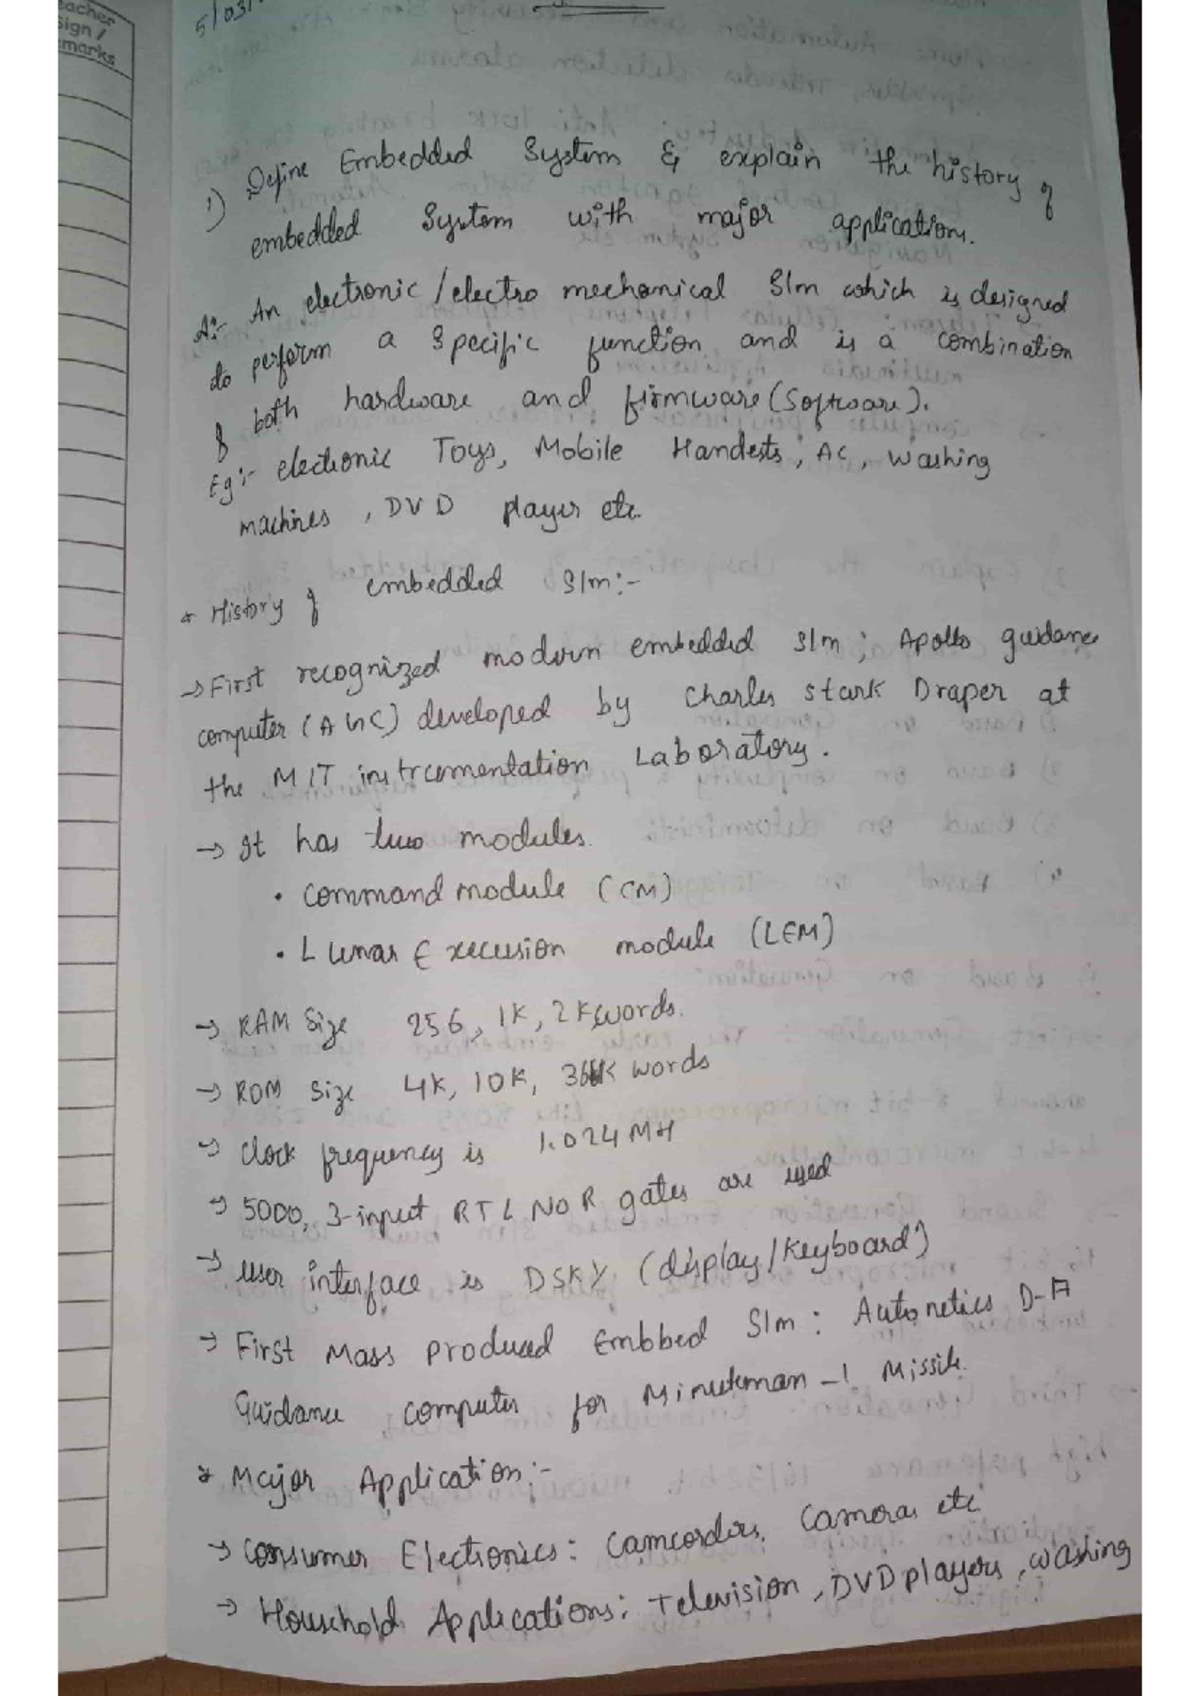 eacher
Sign /
emarks
5/03/
1) Define Embedded System & explain the history of
embedded System with major applications.
A:- An electronic/electro mechanical S/m which is designed
to perform a specific function and is a combination
of both hardware and firmware (Software).
Eg:- electronic Toys, Mobile Handests, AC, washing
machines, DVD player etc.
* History of embedded S/m:-
→ First recognized modern embedded S/m; Apollo guidance
computer (AGC) developed by Charles stark Draper at
the MIT instrumentation Laboratory.
→ It has two modules.
• Command module (CM)
• Lunar Excursion module (LEM)
→ RAM Size 256, 1K, 2K words.
→ ROM Size 4K, 10K, 36K words
→ Clock frequency is 1.024 MH
→ 5000, 3-input RTL NOR gates are used
→ User interface is DSKY (display/Keyboard)
→ First Mass Produced Embbed S/m: Autonetics D-17
Guidance computer for Minuteman-1 Missile.
* Major Application:-
→ Consumer Electronics: Camcorders, Cameras etc
→ Household Applications: Television, DVD players, washing